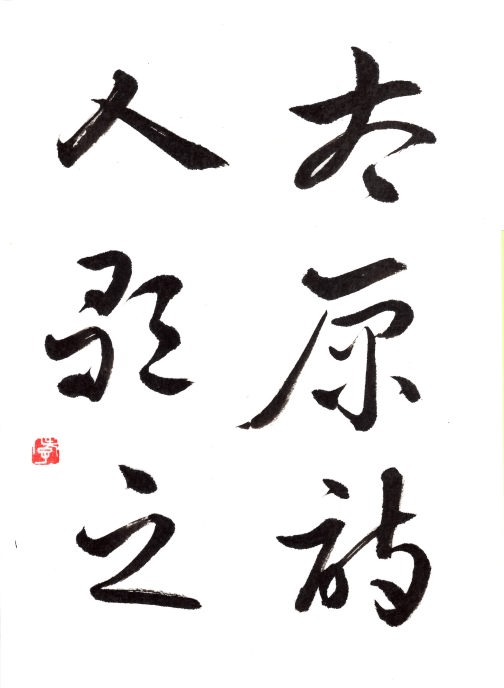 太原詩
人歌之